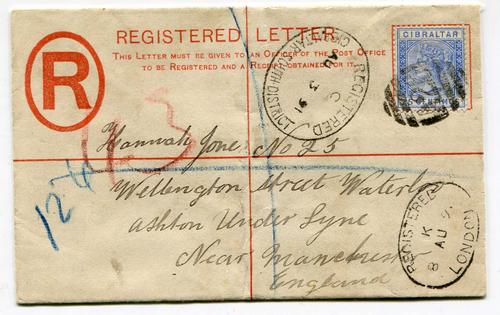 REGISTERED LETTER.
THIS LETTER MUST BE GIVEN TO AN OFFICER OF THE POST OFFICE
TO BE REGISTERED AND A RECEIPT OBTAINED FOR IT.
R
GIBRALTAR
REGISTERED
GIBRALTAR
AU 3 91
Hannah Jones No 25
Wellington Street Waterloo
Ashton Under Lyne
Near Manchester
England
REGISTERED
K
8 AU 9
LONDON